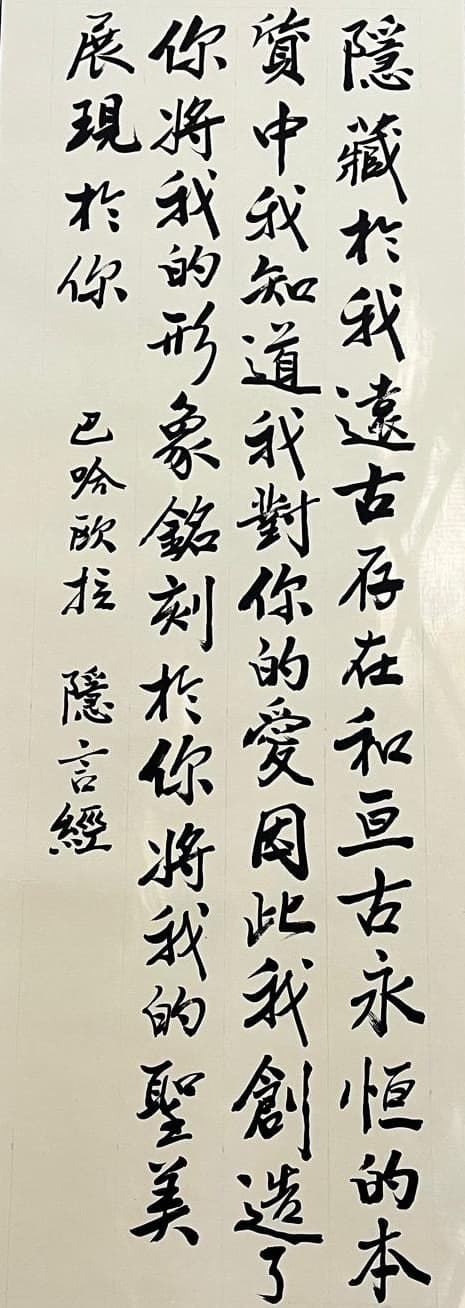 隱藏於我遠古存在和亘古永恒的本
質中我知道我對你的愛因此我創造了
你將我的形象銘刻於你將我的聖美
展現於你
巴哈歐拉 隱言經